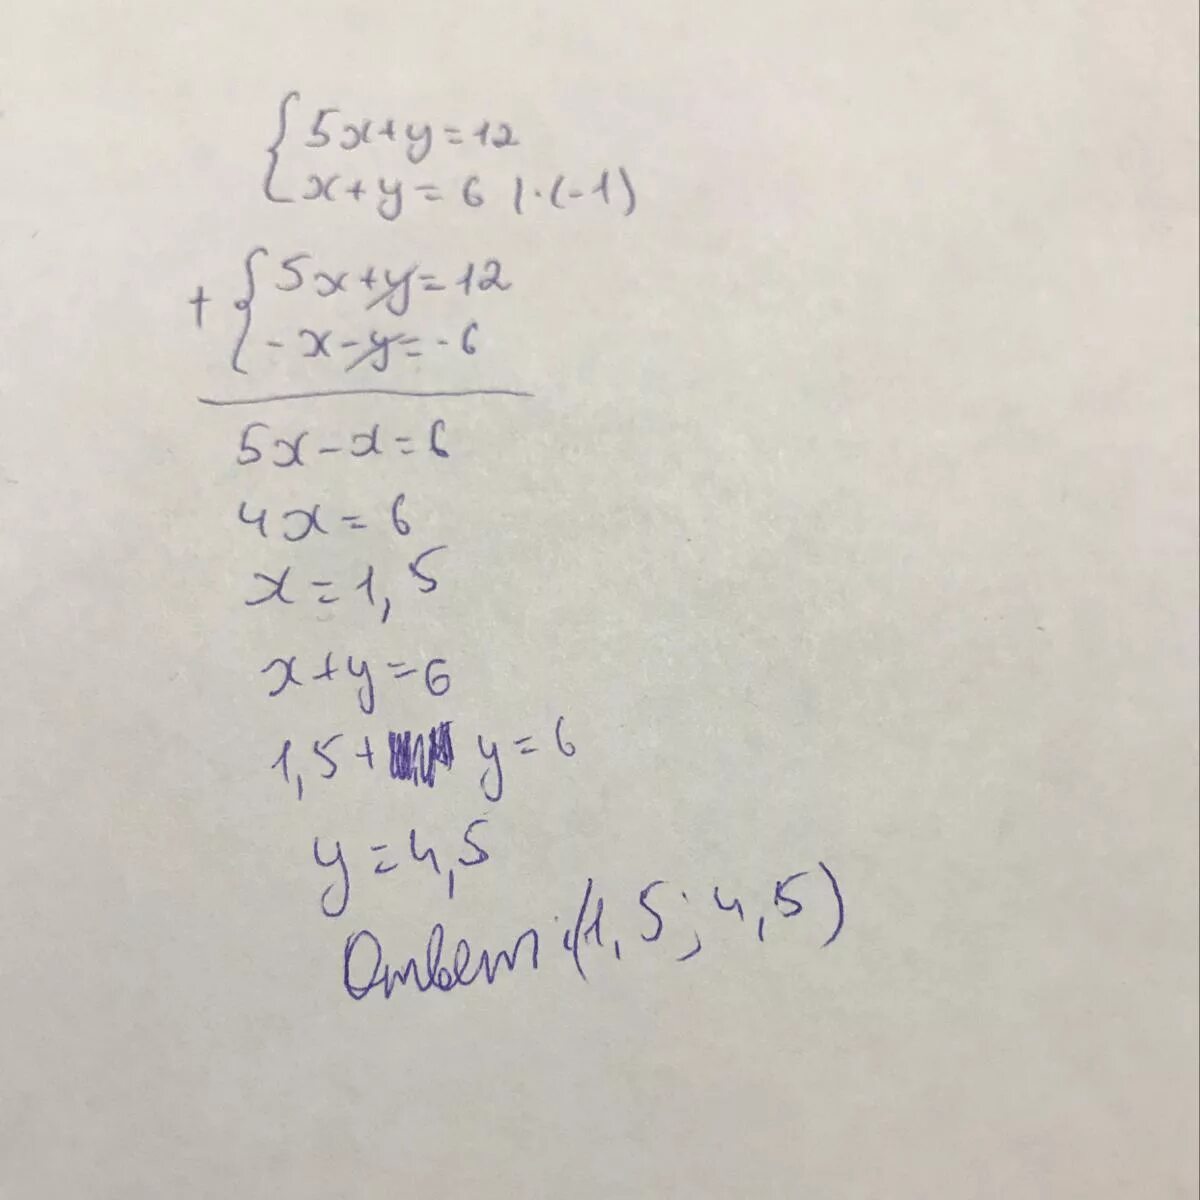 {5x+y=12
x+y=6 |·(-1)
+ {5x+y=12
-x-y=-6
5x-x=6
4x=6
x=1,5
x+y=6
1,5+ y=6
y=4,5
Ответ:(1,5;4,5)